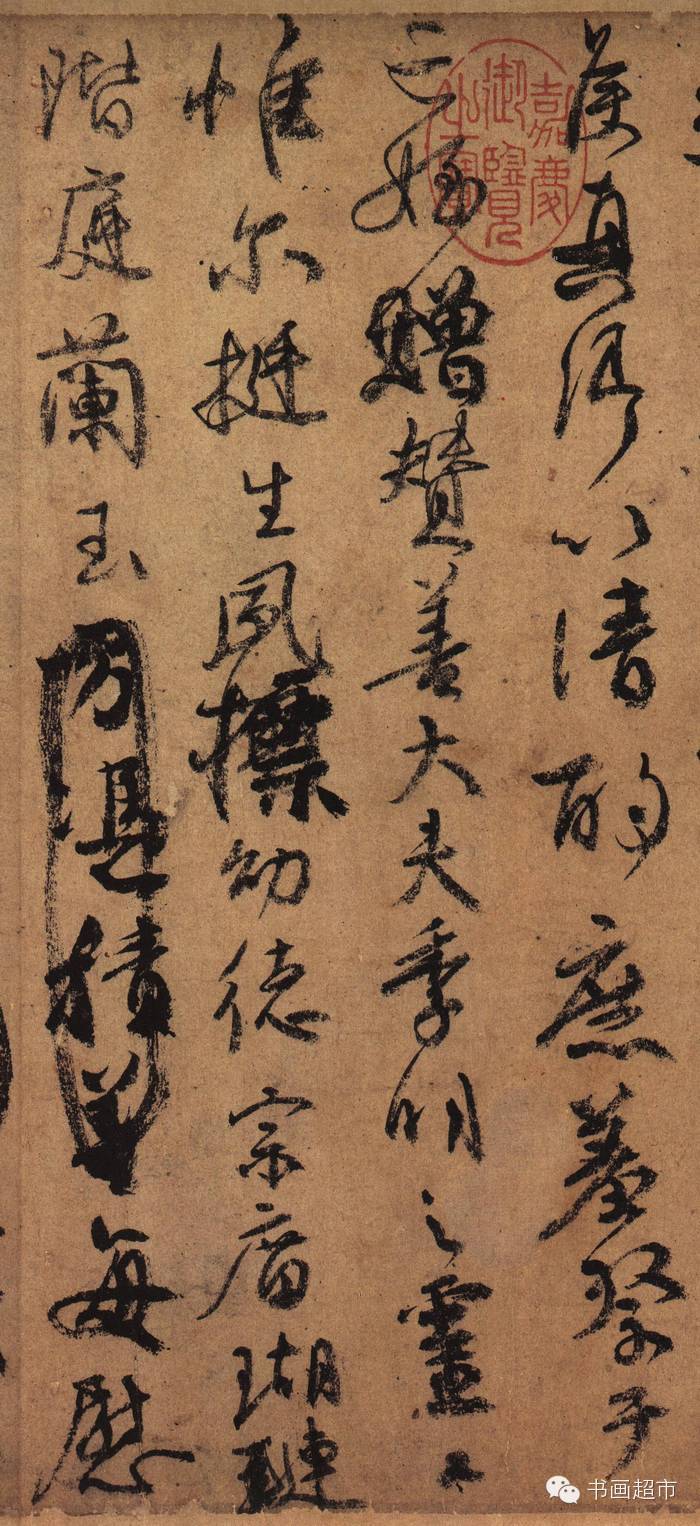 侯真卿以清酌庶羞祭于
亡姪贈贊善大夫季明之靈曰
惟尔挺生夙標幼德宗廟瑚璉
階庭蘭玉方憑積善每慰
嘉慶御覽之寶
书画超市